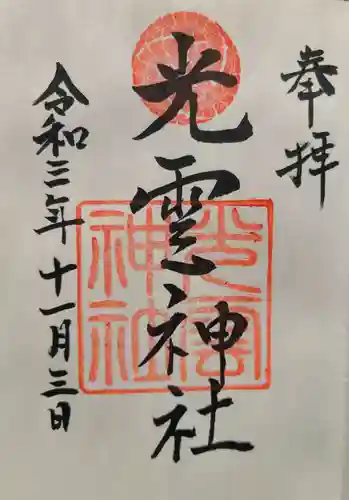 奉拝
光雲神社
令和三年十一月三日
光雲
神社